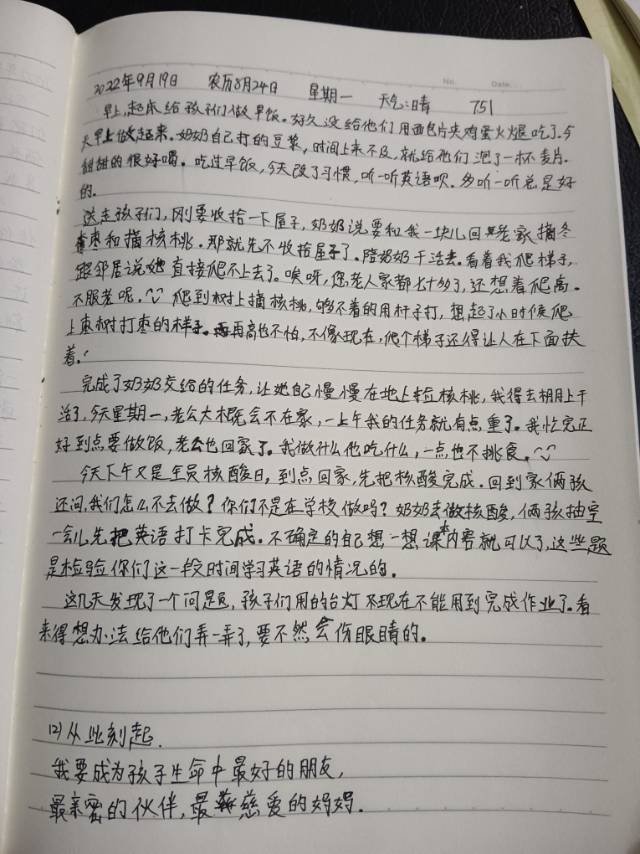 No. Date.
2022年9月19日 农历8月24日 星期一 天气:晴 751
早上,起床给孩子们做早饭。好久没给他们用面包片夹鸡蛋火腿吃了,今
天早上做起来。奶奶自己打的豆浆,时间上来不及,就给他们泡了一杯麦片。
甜甜的很好喝。吃过早饭,今天改了习惯,听一听英语呗。多听一听总是好
的。
送走孩子们,刚要收拾一下屋子,奶奶说要和我一块儿回老家摘冬
枣和摘核桃。那就先不收拾屋子了。陪奶奶干活去。看着我爬梯子,
跟邻居说她直接爬不上去了。唉呀,您老人家都七十多了,还想着爬高。
不服老呢。爬到树上摘核桃,够不着的用杆子打,想起了小时候爬
上枣树打枣的样子。再高也不怕,不像现在,爬个梯子还得让人在下面扶
着!
完成了奶奶交给的任务,让她自己慢慢在地上捡核桃,我得去相月上干
活了,今天星期一,老公大概会不在家,一上午我的任务就有点重了。我忙完正
好到点要做饭,老公也回家了。我做什么他吃什么,一点也不挑食。
今天下午又是全员核酸日,到点回家,先把核酸完成。回到家俩孩
还问,我们怎么不去做?你们不是在学校做吗?奶奶去做核酸,俩孩抽空
一会儿先把英语打卡完成。不确定的自己想一想课本内容就可以了,这些题
是检验你们这一段时间学习英语的情况的。
这几天发现了一个问题,孩子们用的台灯不现在不能用到完成作业了。看
来得想办法给他们弄一弄了,要不然会伤眼睛的。
12)从此刻起.
我要成为孩子生命中最好的朋友,
最亲密的伙伴,最慈爱的妈妈.